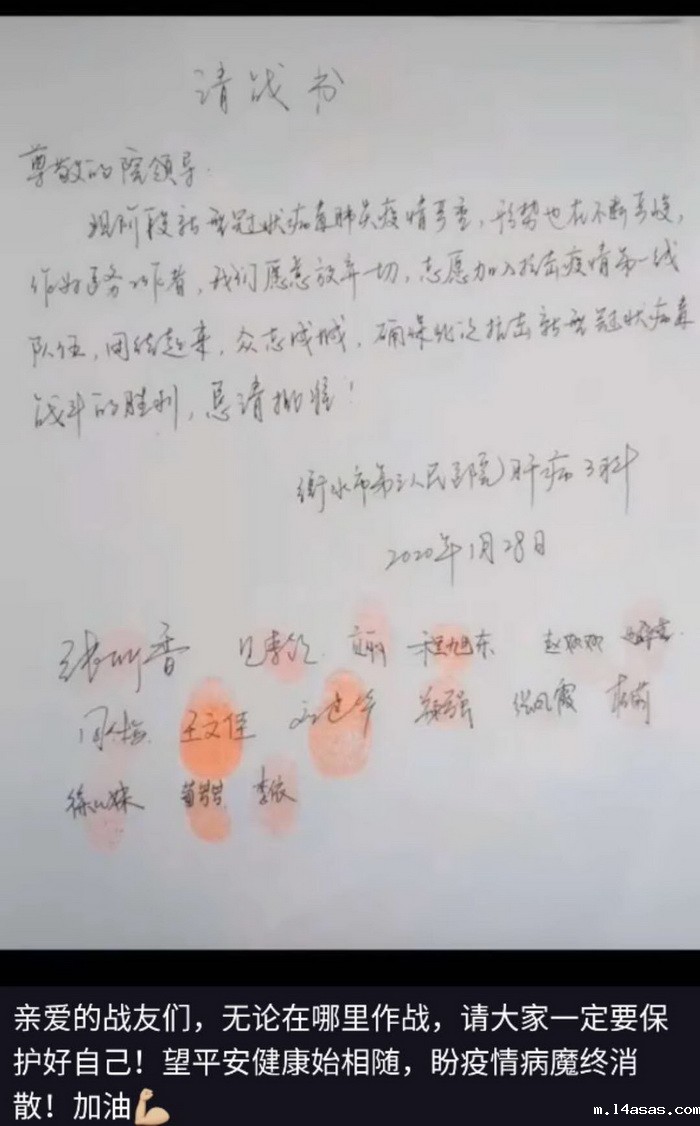 请战书
尊敬的院领导:
现阶段新型冠状病毒肺炎疫情严重,形势也在不断严峻,
作为医务工作者,我们愿意放弃一切,志愿加入抗击疫情第一线
队伍,团结起来,众志成城,确保此次抗击新型冠状病毒
战斗的胜利,恳请批准!
衡水市第三人民医院肝病三科
2020年1月28日
程旭东
王文佳 张凤霞
李依
亲爱的战友们,无论在哪里作战,请大家一定要保
护好自己!望平安健康始相随,盼疫情病魔终消
散!加油💪
m.14asas.com